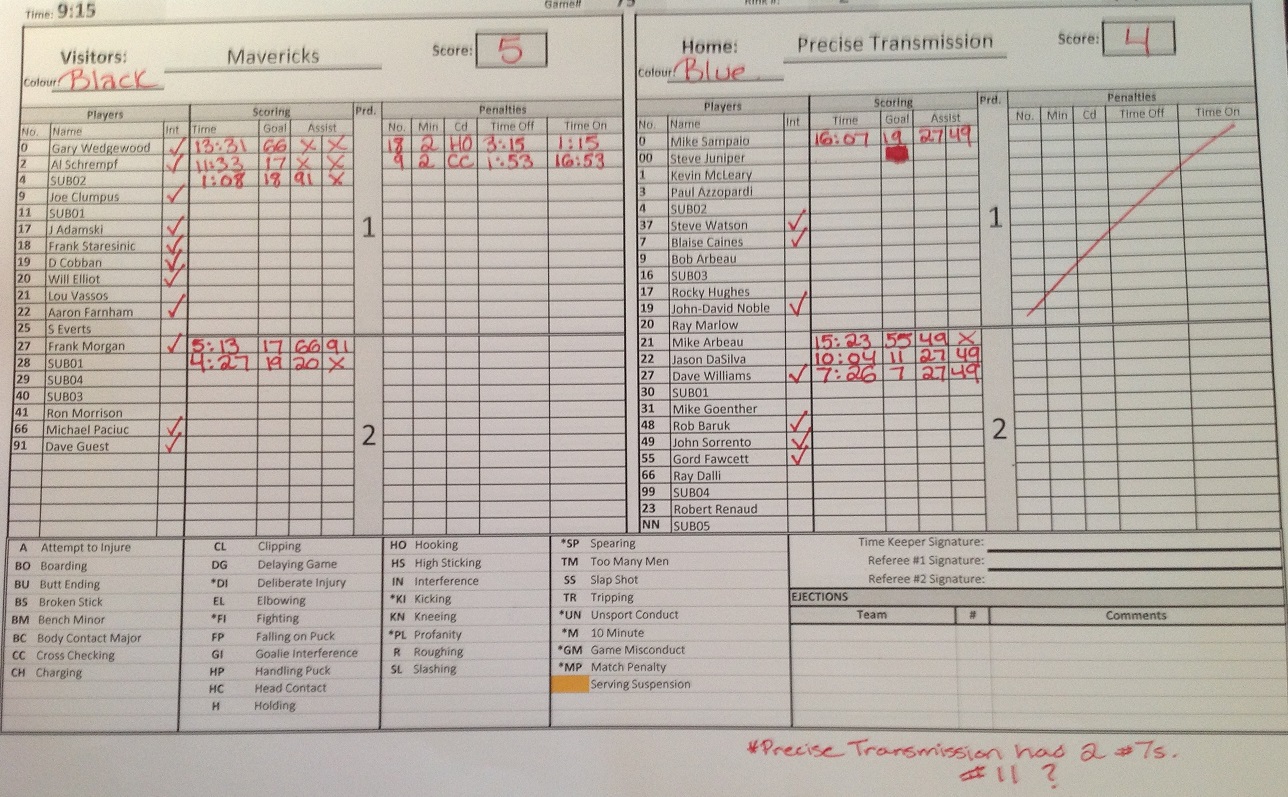 Time: 9:15 Game# 75
Visitors: Mavericks Score: 5 Home: Precise Transmission Score: 4
Colour: Black Colour: Blue
Players Scoring Prd. Penalties Players Scoring Prd. Penalties
No. Name Int Time Goal Assist No. Min Cd Time Off Time On No. Name Int Time Goal Assist No. Min Cd Time Off Time On
0 Gary Wedgewood ✓ 13:31 66 X X 18 2 HO 3:15 1:15 0 Mike Sampaio 16:07 19 27 49
2 Al Schrempf ✓ 11:33 17 X X 9 2 CC 1:53 16:53 00 Steve Juniper
4 SUB02 1:08 18 91 X 1 Kevin McLeary
9 Joe Clumpus ✓ 3 Paul Azzopardi
11 SUB01 4 SUB02
17 J Adamski ✓ 1 37 Steve Watson ✓ 1
18 Frank Staresinic ✓ 7 Blaise Caines ✓
19 D Cobban ✓ 9 Bob Arbeau
20 Will Elliot ✓ 16 SUB03
21 Lou Vassos 17 Rocky Hughes
22 Aaron Farnham ✓ 19 John-David Noble ✓
25 S Everts 20 Ray Marlow
27 Frank Morgan ✓ 5:13 17 66 91 21 Mike Arbeau 15:23 55 49 X
28 SUB01 4:27 19 20 X 22 Jason DaSilva 10:04 11 27 49
29 SUB04 27 Dave Williams ✓ 7:26 7 27 49
40 SUB03 30 SUB01
41 Ron Morrison 31 Mike Goenther
66 Michael Paciuc ✓ 2 48 Rob Baruk ✓ 2
91 Dave Guest ✓ 49 John Sorrento ✓
55 Gord Fawcett ✓
66 Ray Dalli
99 SUB04
23 Robert Renaud
NN SUB05
A Attempt to Injure CL Clipping HO Hooking *SP Spearing Time Keeper Signature:
BO Boarding DG Delaying Game HS High Sticking TM Too Many Men Referee #1 Signature:
BU Butt Ending *DI Deliberate Injury IN Interference SS Slap Shot Referee #2 Signature:
BS Broken Stick EL Elbowing *KI Kicking TR Tripping EJECTIONS
BM Bench Minor *FI Fighting KN Kneeing *UN Unsport Conduct Team # Comments
BC Body Contact Major FP Falling on Puck *PL Profanity *M 10 Minute
CC Cross Checking GI Goalie Interference R Roughing *GM Game Misconduct
CH Charging HP Handling Puck SL Slashing *MP Match Penalty
HC Head Contact Serving Suspension
H Holding
*Precise Transmission had 2 #7s.
#11 ?